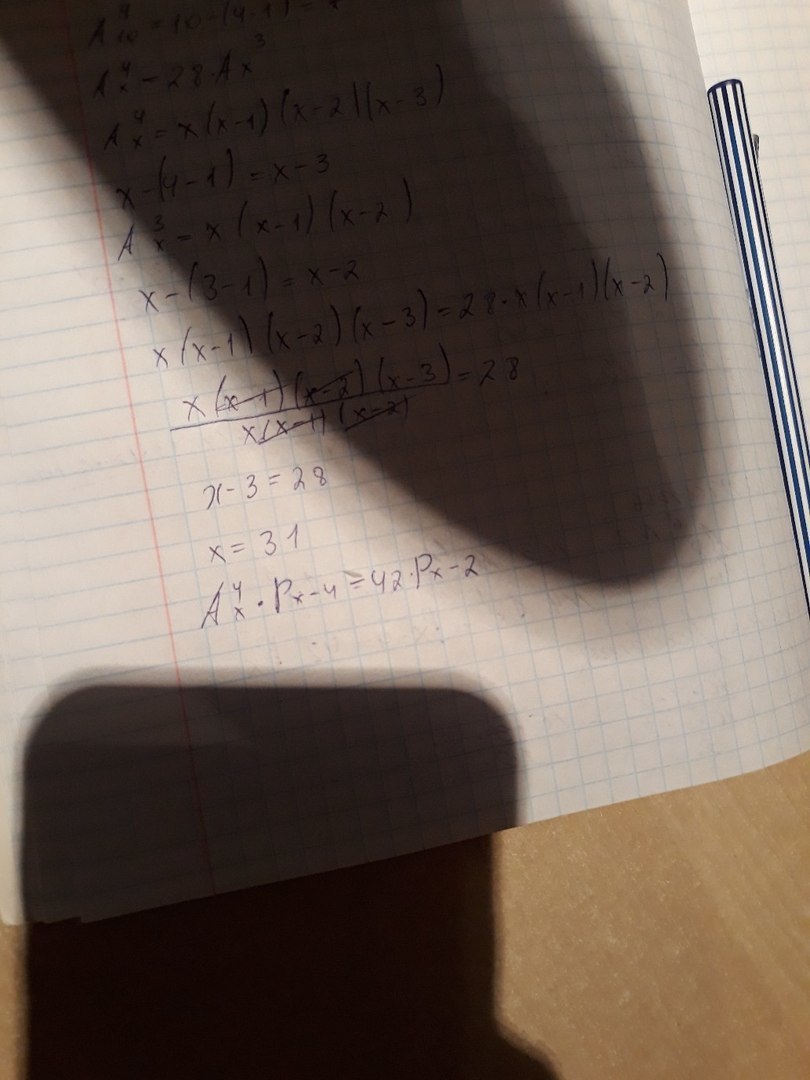 A⁴₁₀ = 10 - (4-1) =
A⁴ₓ - 28 · Aₓ³
A⁴ₓ = x(x-1)(x-2)(x-3)
x-(4-1) = x-3
A³ₓ = x(x-1)(x-2)
x-(3-1) = x-2
x(x-1)(x-2)(x-3) = 28·x(x-1)(x-2)
x(x-1)(x-2)(x-3) = 28
x(x-1)(x-2)
x-3=28
x=31
A⁴ₓ · Pₓ₋₄ = 42·Pₓ₋₂